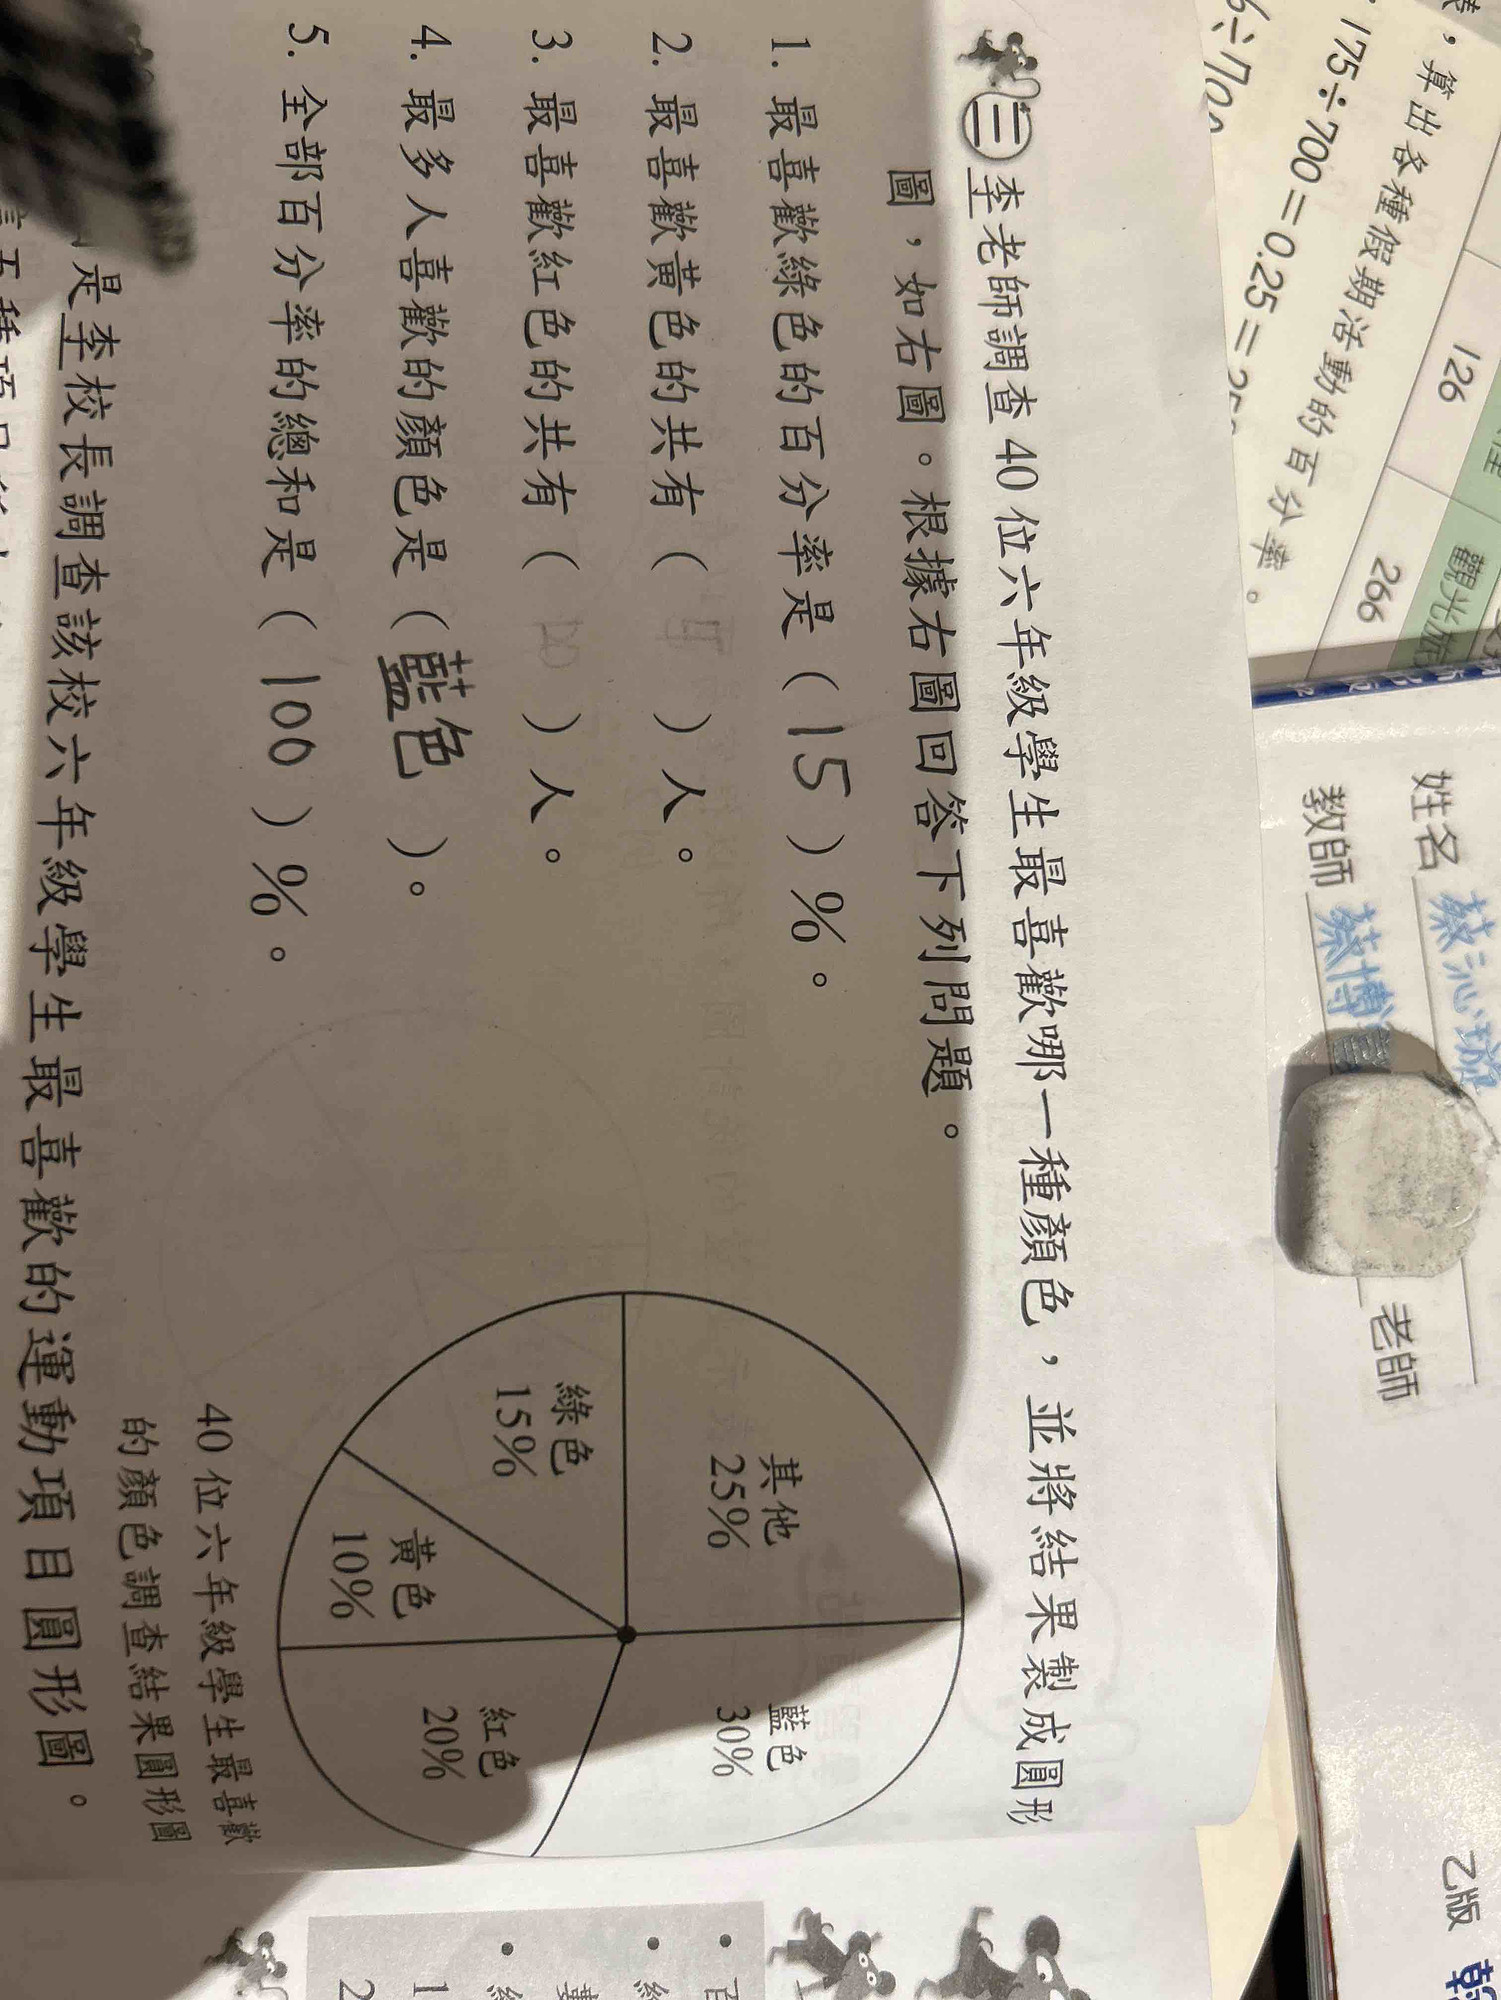 ㊂李老師調查40位六年級學生最喜歡哪一種顏色，並將結果製成圓形
圖，如右圖。根據右圖回答下列問題。
1. 最喜歡綠色的百分率是（15）%。
2. 最喜歡黃色的共有（ ）人。
3. 最喜歡紅色的共有（ ）人。
4. 最多人喜歡的顏色是（藍色）。
5. 全部百分率的總和是（100）%。
其他
25%
藍色
30%
綠色
15%
黃色
10%
紅色
20%
40位六年級學生最喜歡
的顏色調查結果圓形圖
是李校長調查該校六年級學生最喜歡的運動項目圓形圖。
126
觀光旅
266
，算出各種假期活動的百分率。
175÷700=0.25=
姓名 蔡沁璇
教師 蔡博 老師
乙版
1
2